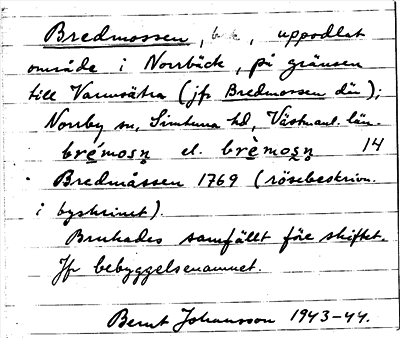 Bredmossen, uppodlat
område i Norrbäck, på gränsen
till Varmsätra (jfr Bredmossen där);
Norrby sn, Simtuna hd, Västmanl. län.
brémosn̥ el. brèmosn̥ 14
Bredmåssen 1769 (rösebeskrivn.
i byskrinet).
Brukades samfällt före skiftet.
Jfr bebyggelsenamnet.
Bernt Johansson 1943-44.